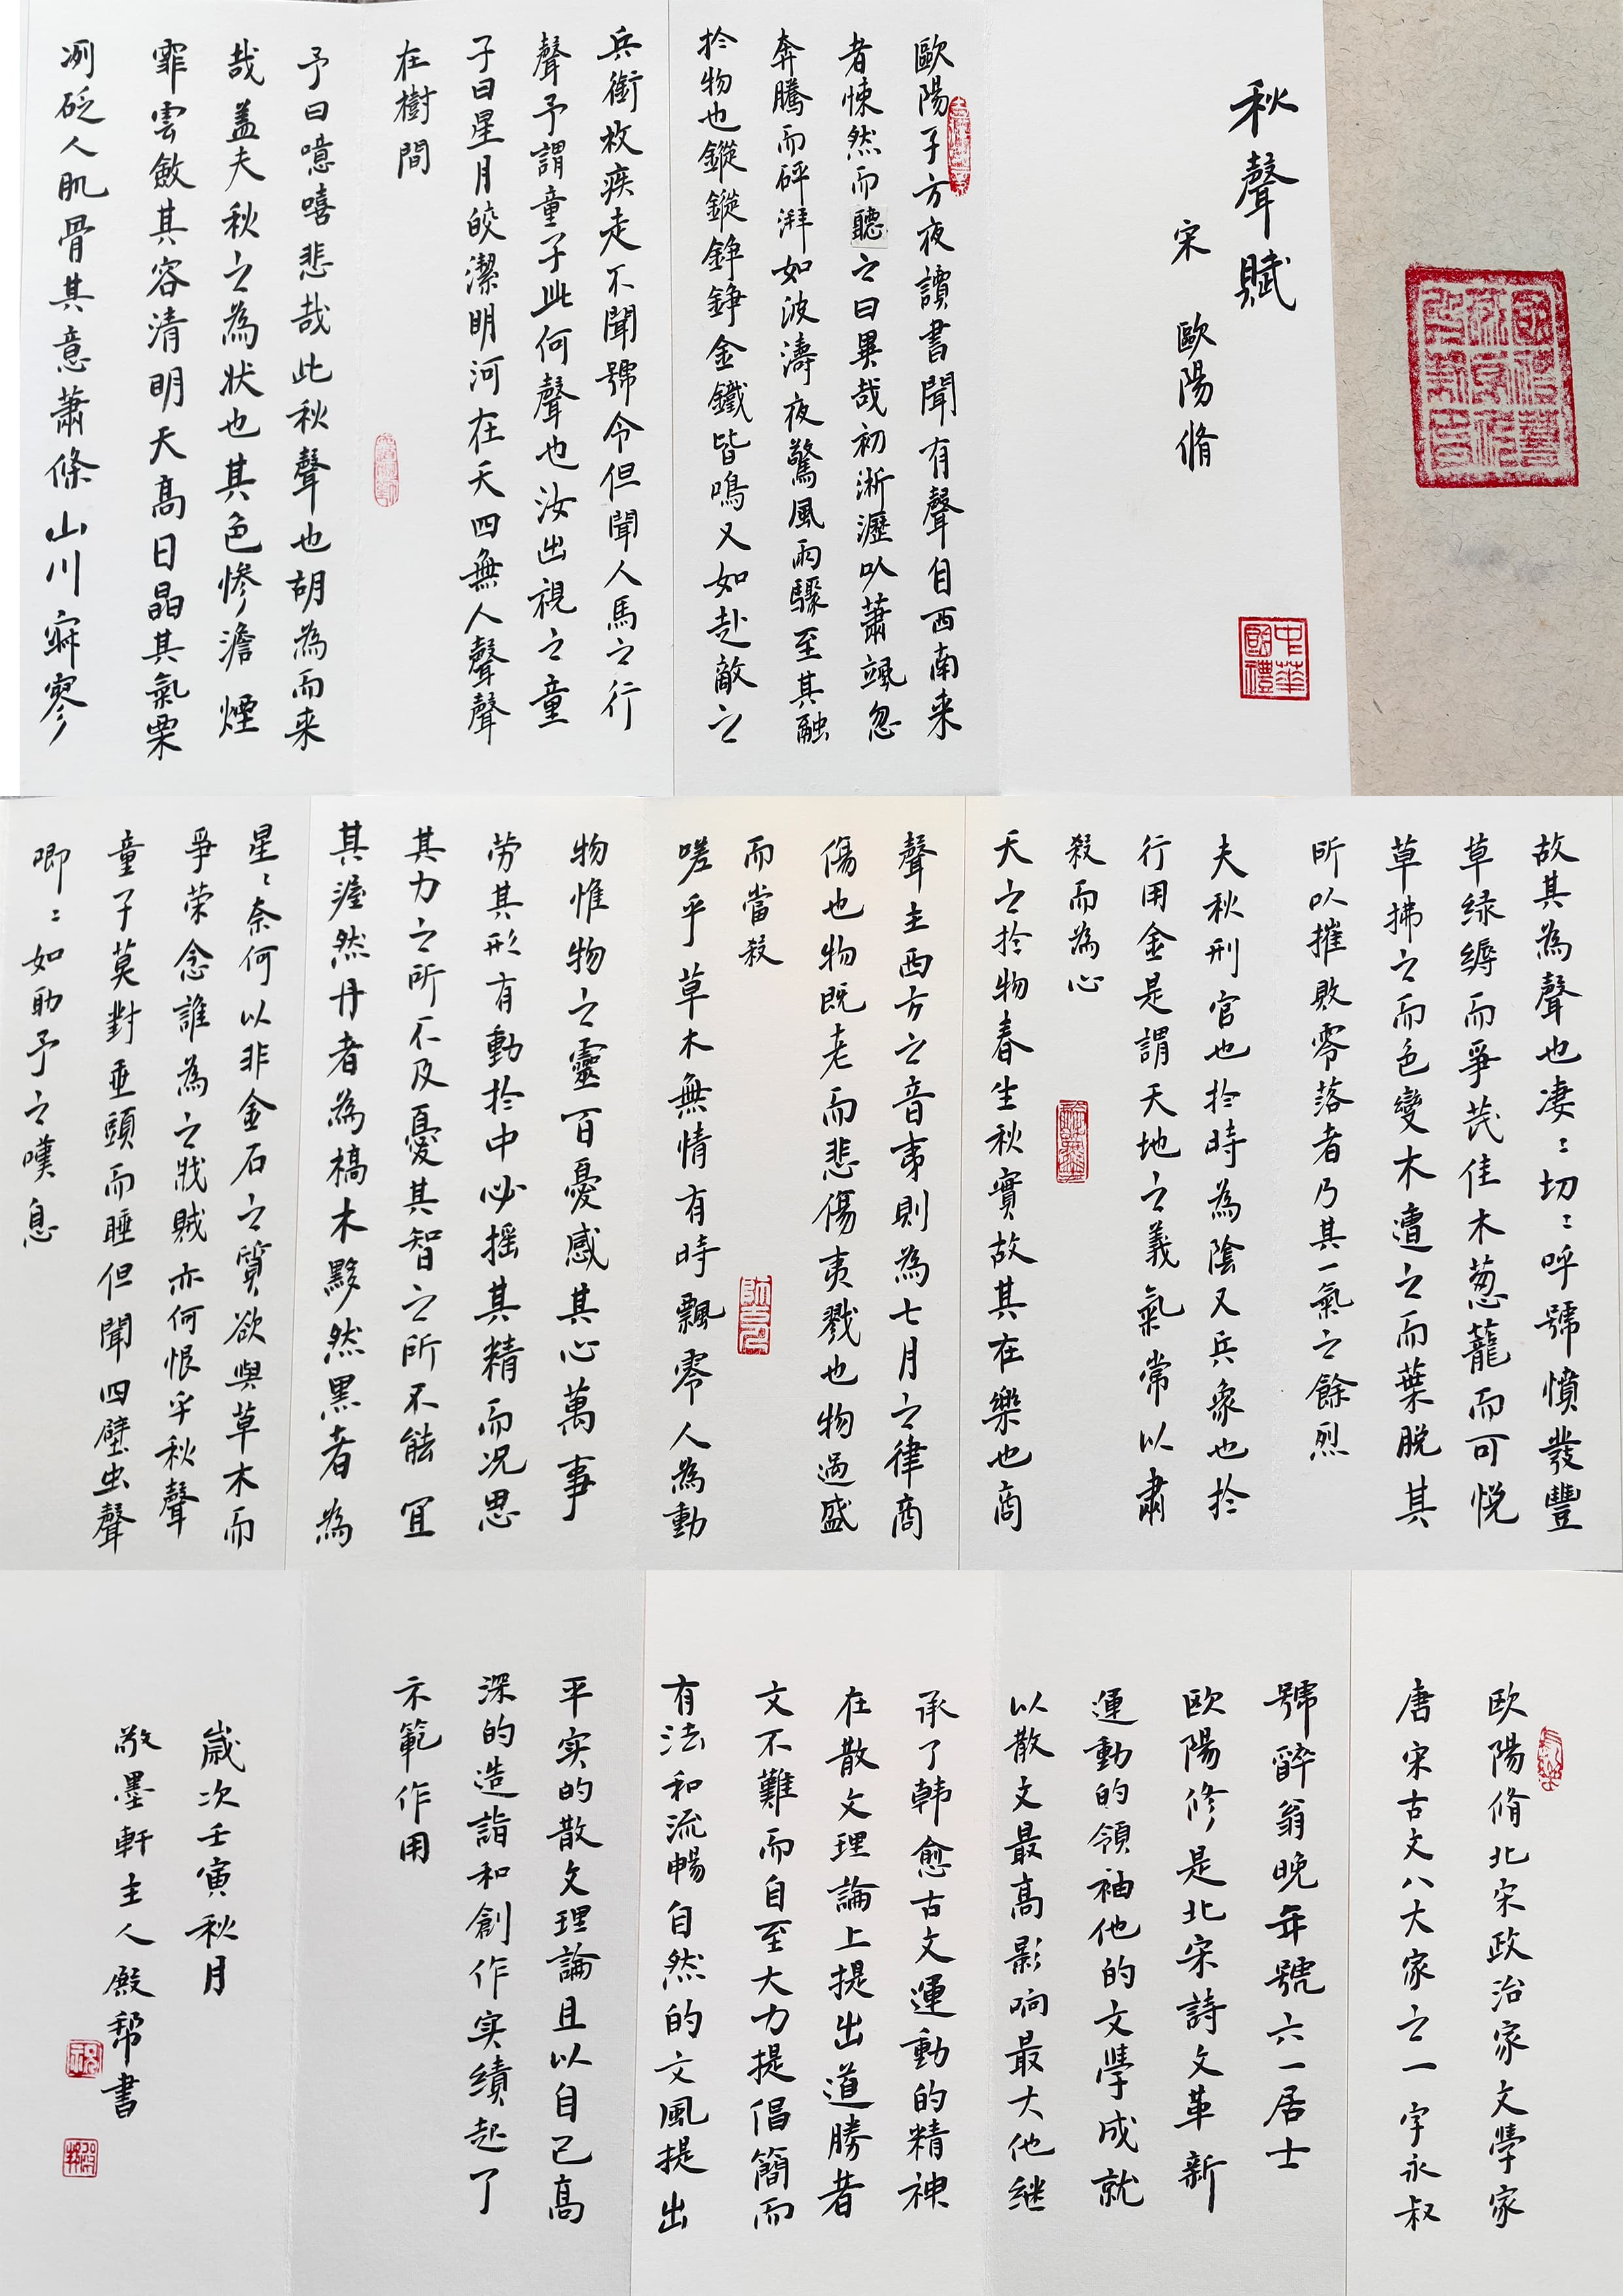 秋聲賦
宋 歐陽脩
中華國禮
歐陽子方夜讀書聞有聲自西南来
者悚然而聽之曰異哉初淅瀝以蕭颯忽
奔騰而砰湃如波濤夜驚風雨驟至其融
扵物也鏦鏦錚錚金鐵皆鳴又如赴敵之
兵銜枚疾走不聞號令但聞人馬之行
聲予謂童子此何聲也汝出視之童
子曰星月皎潔明河在天四無人聲聲
在樹間
予曰噫嘻悲哉此秋聲也胡為而来
哉盖夫秋之為狀也其色慘澹煙
霏雲斂其容清明天高日晶其氣栗
冽砭人肌骨其意蕭條山川寂寥
故其為聲也凄〻切〻呼號憤發豐
草绿縟而爭茂佳木葱蘢而可悦
草拂之而色變木遭之而葉脱其
所以摧敗零落者乃其一氣之餘烈
夫秋刑官也扵時為陰又兵象也扵
行用金是謂天地之義氣常以肅
殺而為心
天之扵物春生秋實故其在樂也商
聲主西方之音夷則為七月之律商
傷也物既老而悲傷夷戮也物過盛
而當殺
嗟乎草木無情有時飄零人為動
物惟物之靈百憂感其心萬事
劳其形有動扵中必摇其精而况思
其力之所不及憂其智之所不能宜
其渥然丹者為槁木黟然黑者為
星〻奈何以非金石之質欲與草木而
爭荣念誰為之戕賊亦何恨乎秋聲
童子莫對垂頭而睡但聞四壁虫聲
唧〻如助予之嘆息
欧陽脩北宋政治家文學家
唐宋古文八大家之一字永叔
號醉翁晚年號六一居士
欧陽修是北宋詩文革新
運動的領袖他的文學成就
以散文最高影响最大他继
承了韩愈古文運動的精神
在散文理論上提出道勝者
文不難而自至大力提倡簡而
有法和流暢自然的文風提出
平实的散文理論且以自己高
深的造詣和創作实绩起了
示範作用
歲次壬寅秋月
敬墨軒主人殿幫書